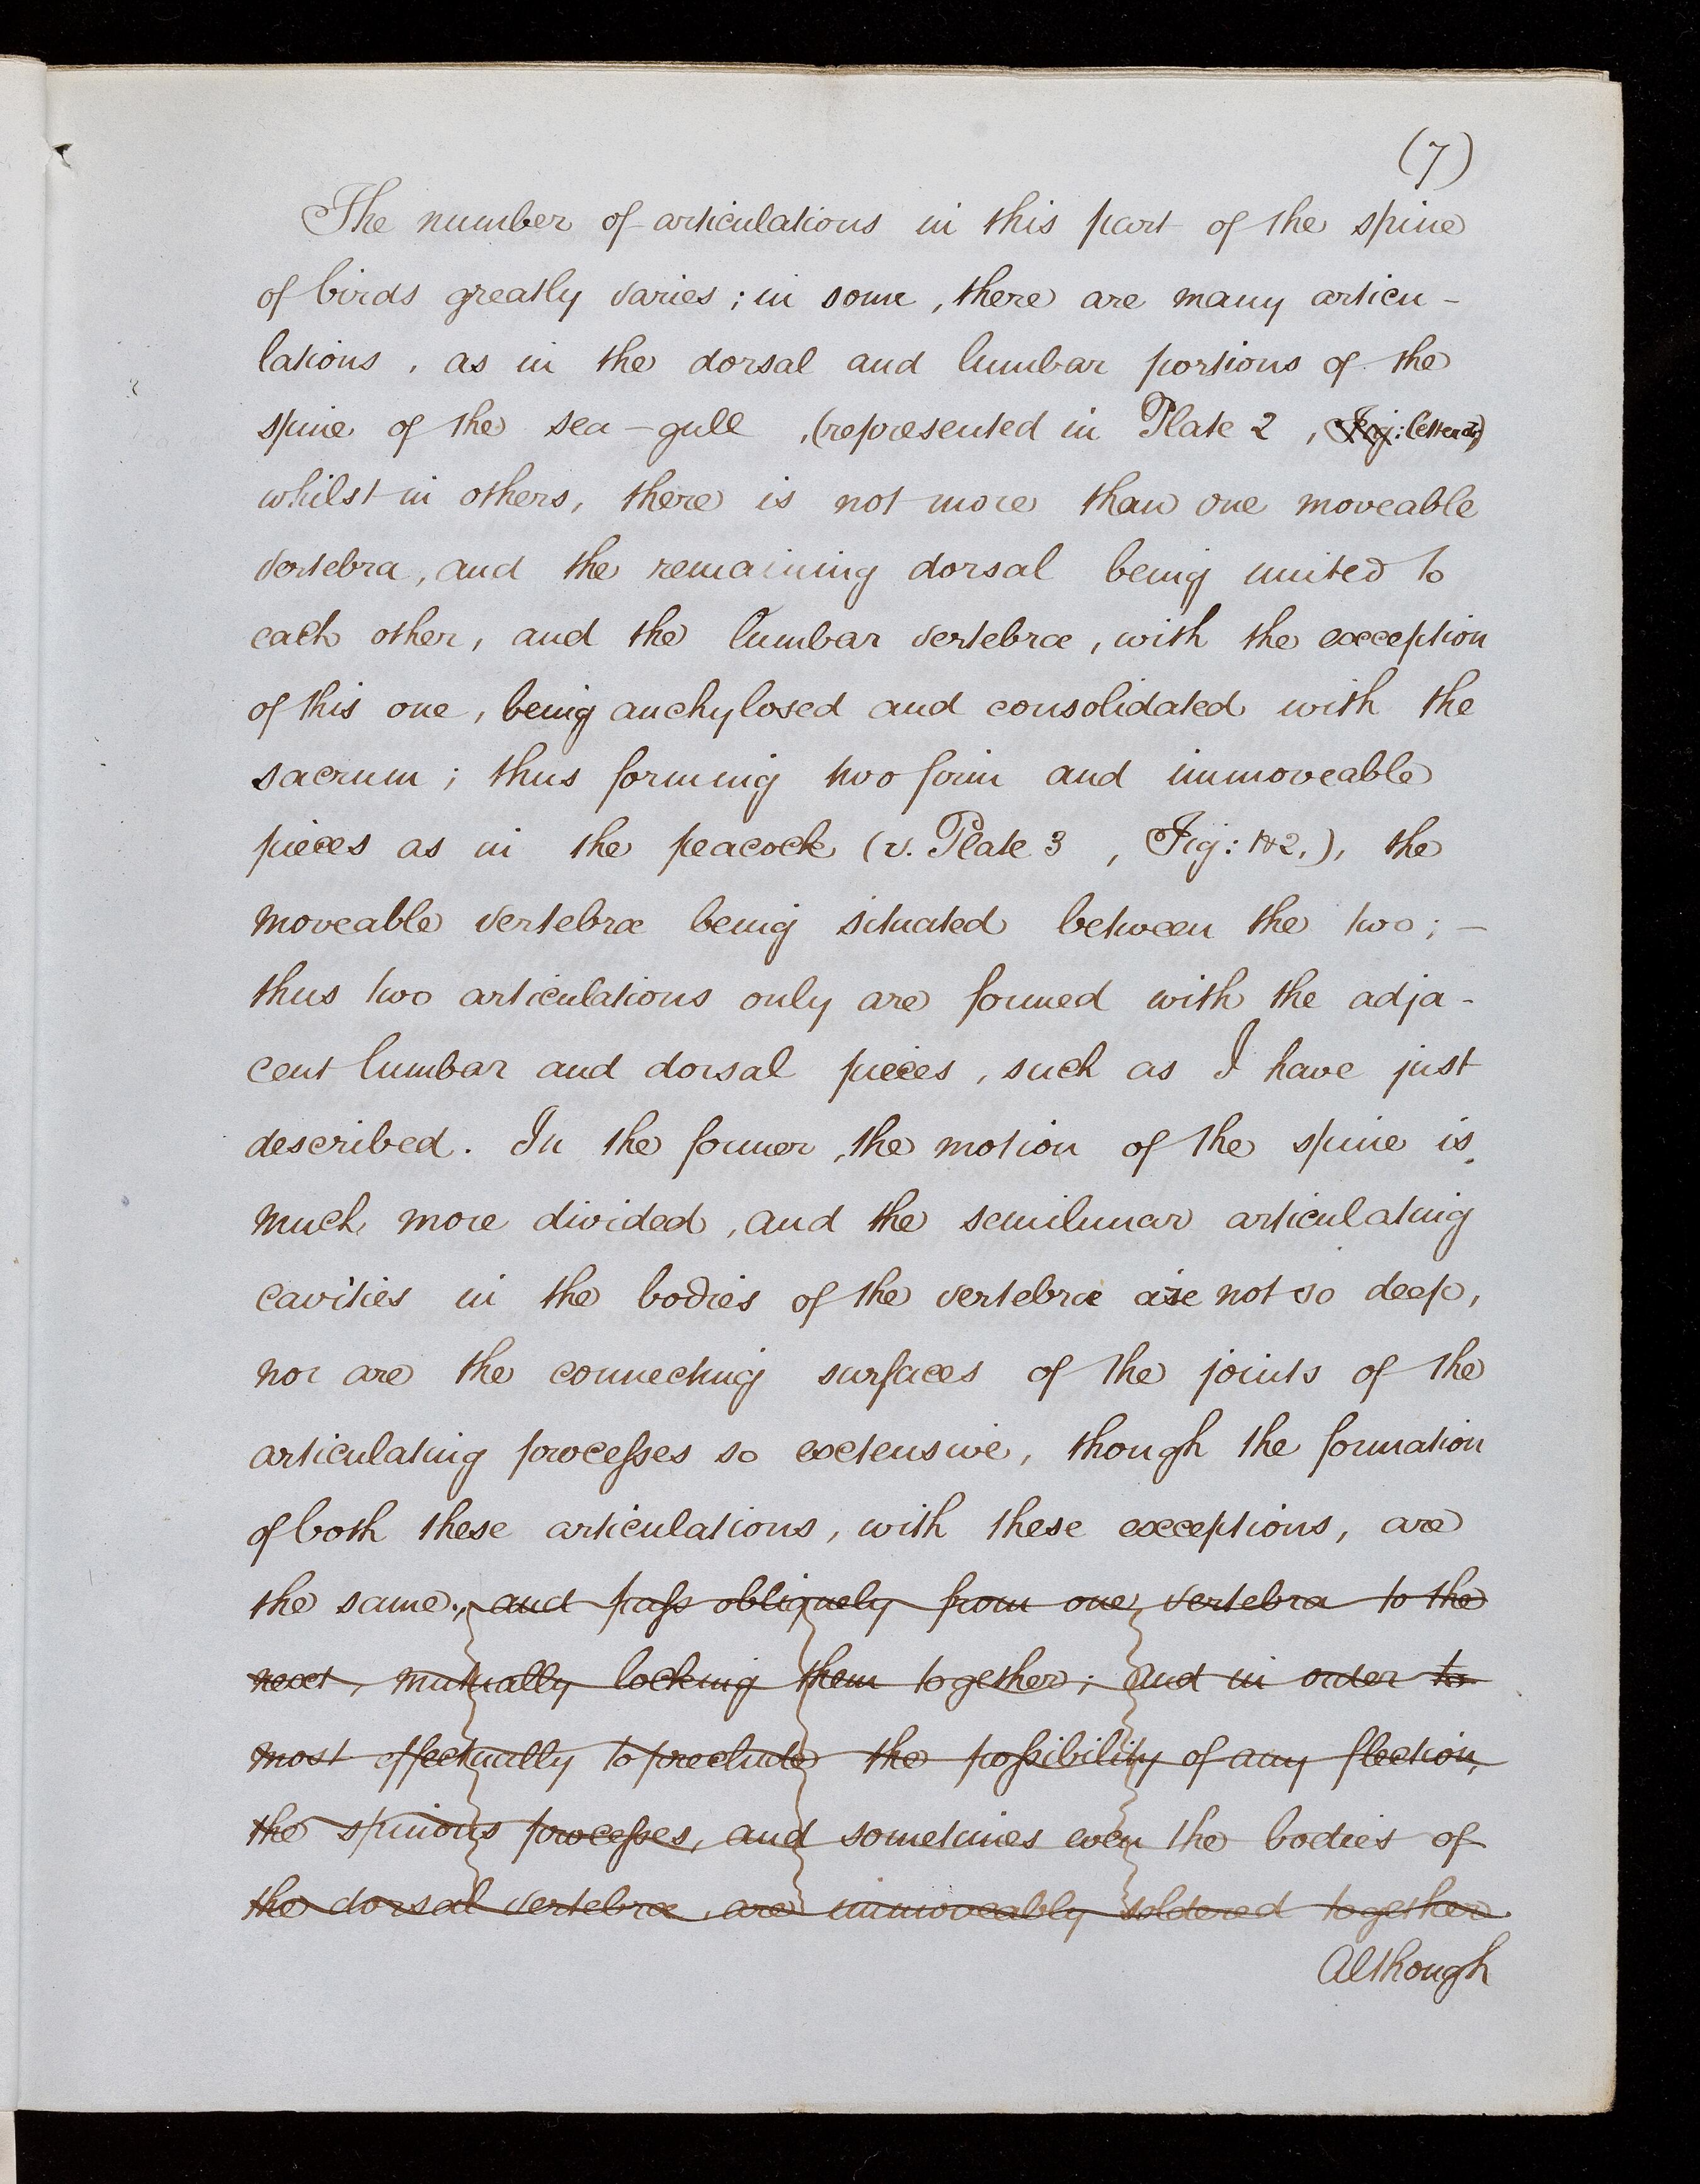 (7)
The number of articulations in this part of the spine
of birds greatly varies; in some, there are many articu-
lations, as in the dorsal and lumbar portions of the
spine of the sea-gull, (represented in Plate 2, Fig:
whilst in others, there is not more than one moveable
vertebra, and the remaining dorsal being united to
each other, and the lumbar vertebræ, with the exception
of this one, being anchylosed and consolidated with the
sacrum; thus forming two firm and immoveable
pieces as in the peacock (v. Plate 3, Fig: 1&2.), the
moveable vertebræ being situated between the two; -
thus two articulations only are formed with the adja-
cent lumbar and dorsal pieces, such as I have just
described. In the former, the motion of the spine is
much more divided, and the semilunar articulating
cavities in the bodies of the vertebræ are not so deep,
nor are the connecting surfaces of the joints of the
articulating processes so extensive, though the formation
of both these articulations, with these exceptions, are
the same., and pass obliquely from one vertebra to the
next, mutually locking them together; and in order to
most effectually to preclude the possibility of any flection,
the spinous processes, and sometimes even the bodies of
the dorsal vertebræ, are immoveably soldered together.
Although